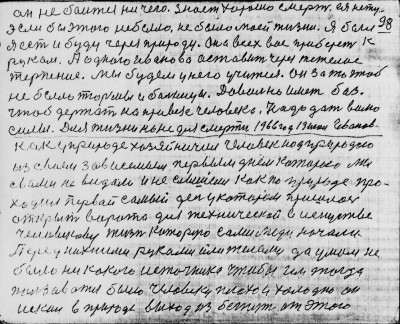 он не боится ничего. Знает хорошо смерть. ея нету 98
Если бы этого не было, не было моей жизни. Я был
я есть и буду через природу. Она всех вас приберет к
рукам. А одного Иванова оставит через тяжелое
терпение. Мы будем у него учится. Он за то чтоб
не было тюрьмы и больницы. Довольно иметь баз.
чтоб держать на привязе человека. Надо дать в ино
силы. Для жизни но не для смерти 1966 год 13 мая Иванов.
Как у природе хозяйничил человек над природою
из своим зависимым первым днем которого мы
с вами не видали и не слышели как по природе про-
ходил первай самый ден у котором пришлось
открыт варота для технической в искустве
человеку жизн которую сами люди начали
Перед нашими руками или ногами да умом не
было ни какого источника чтобы им тогда
пользоватся было человеку плохо и холодно он
искал в природе выход из бежать от этого